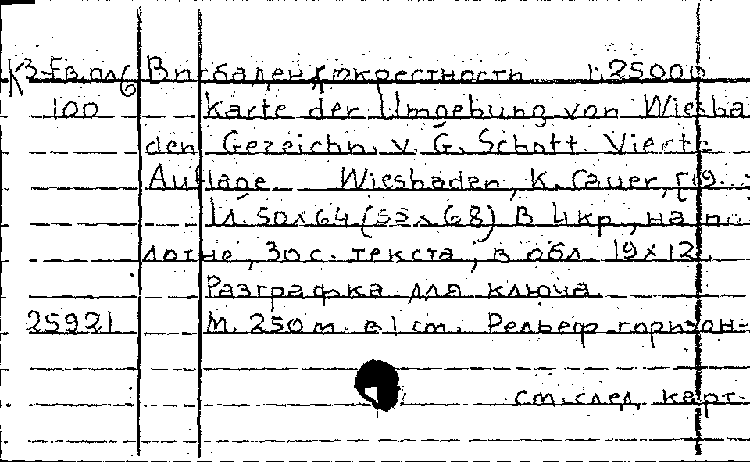 К3-Ев.пл6 Висбаден, окрестности 1:25000
100 Karte der Umgebung von Wiesba
den Gezeichn. v. G. Schott. Viert.
Auflage Wiesbaden, K. Cauer, [19...
1л. 50x64 (55x68) В 4 кр., на по
лотне, 30 с. текста, в обл. 19x12.
Разграфка для ключа
25921 М. 250 m. в 1 cm. Рельеф горизон-
см. след. карт.